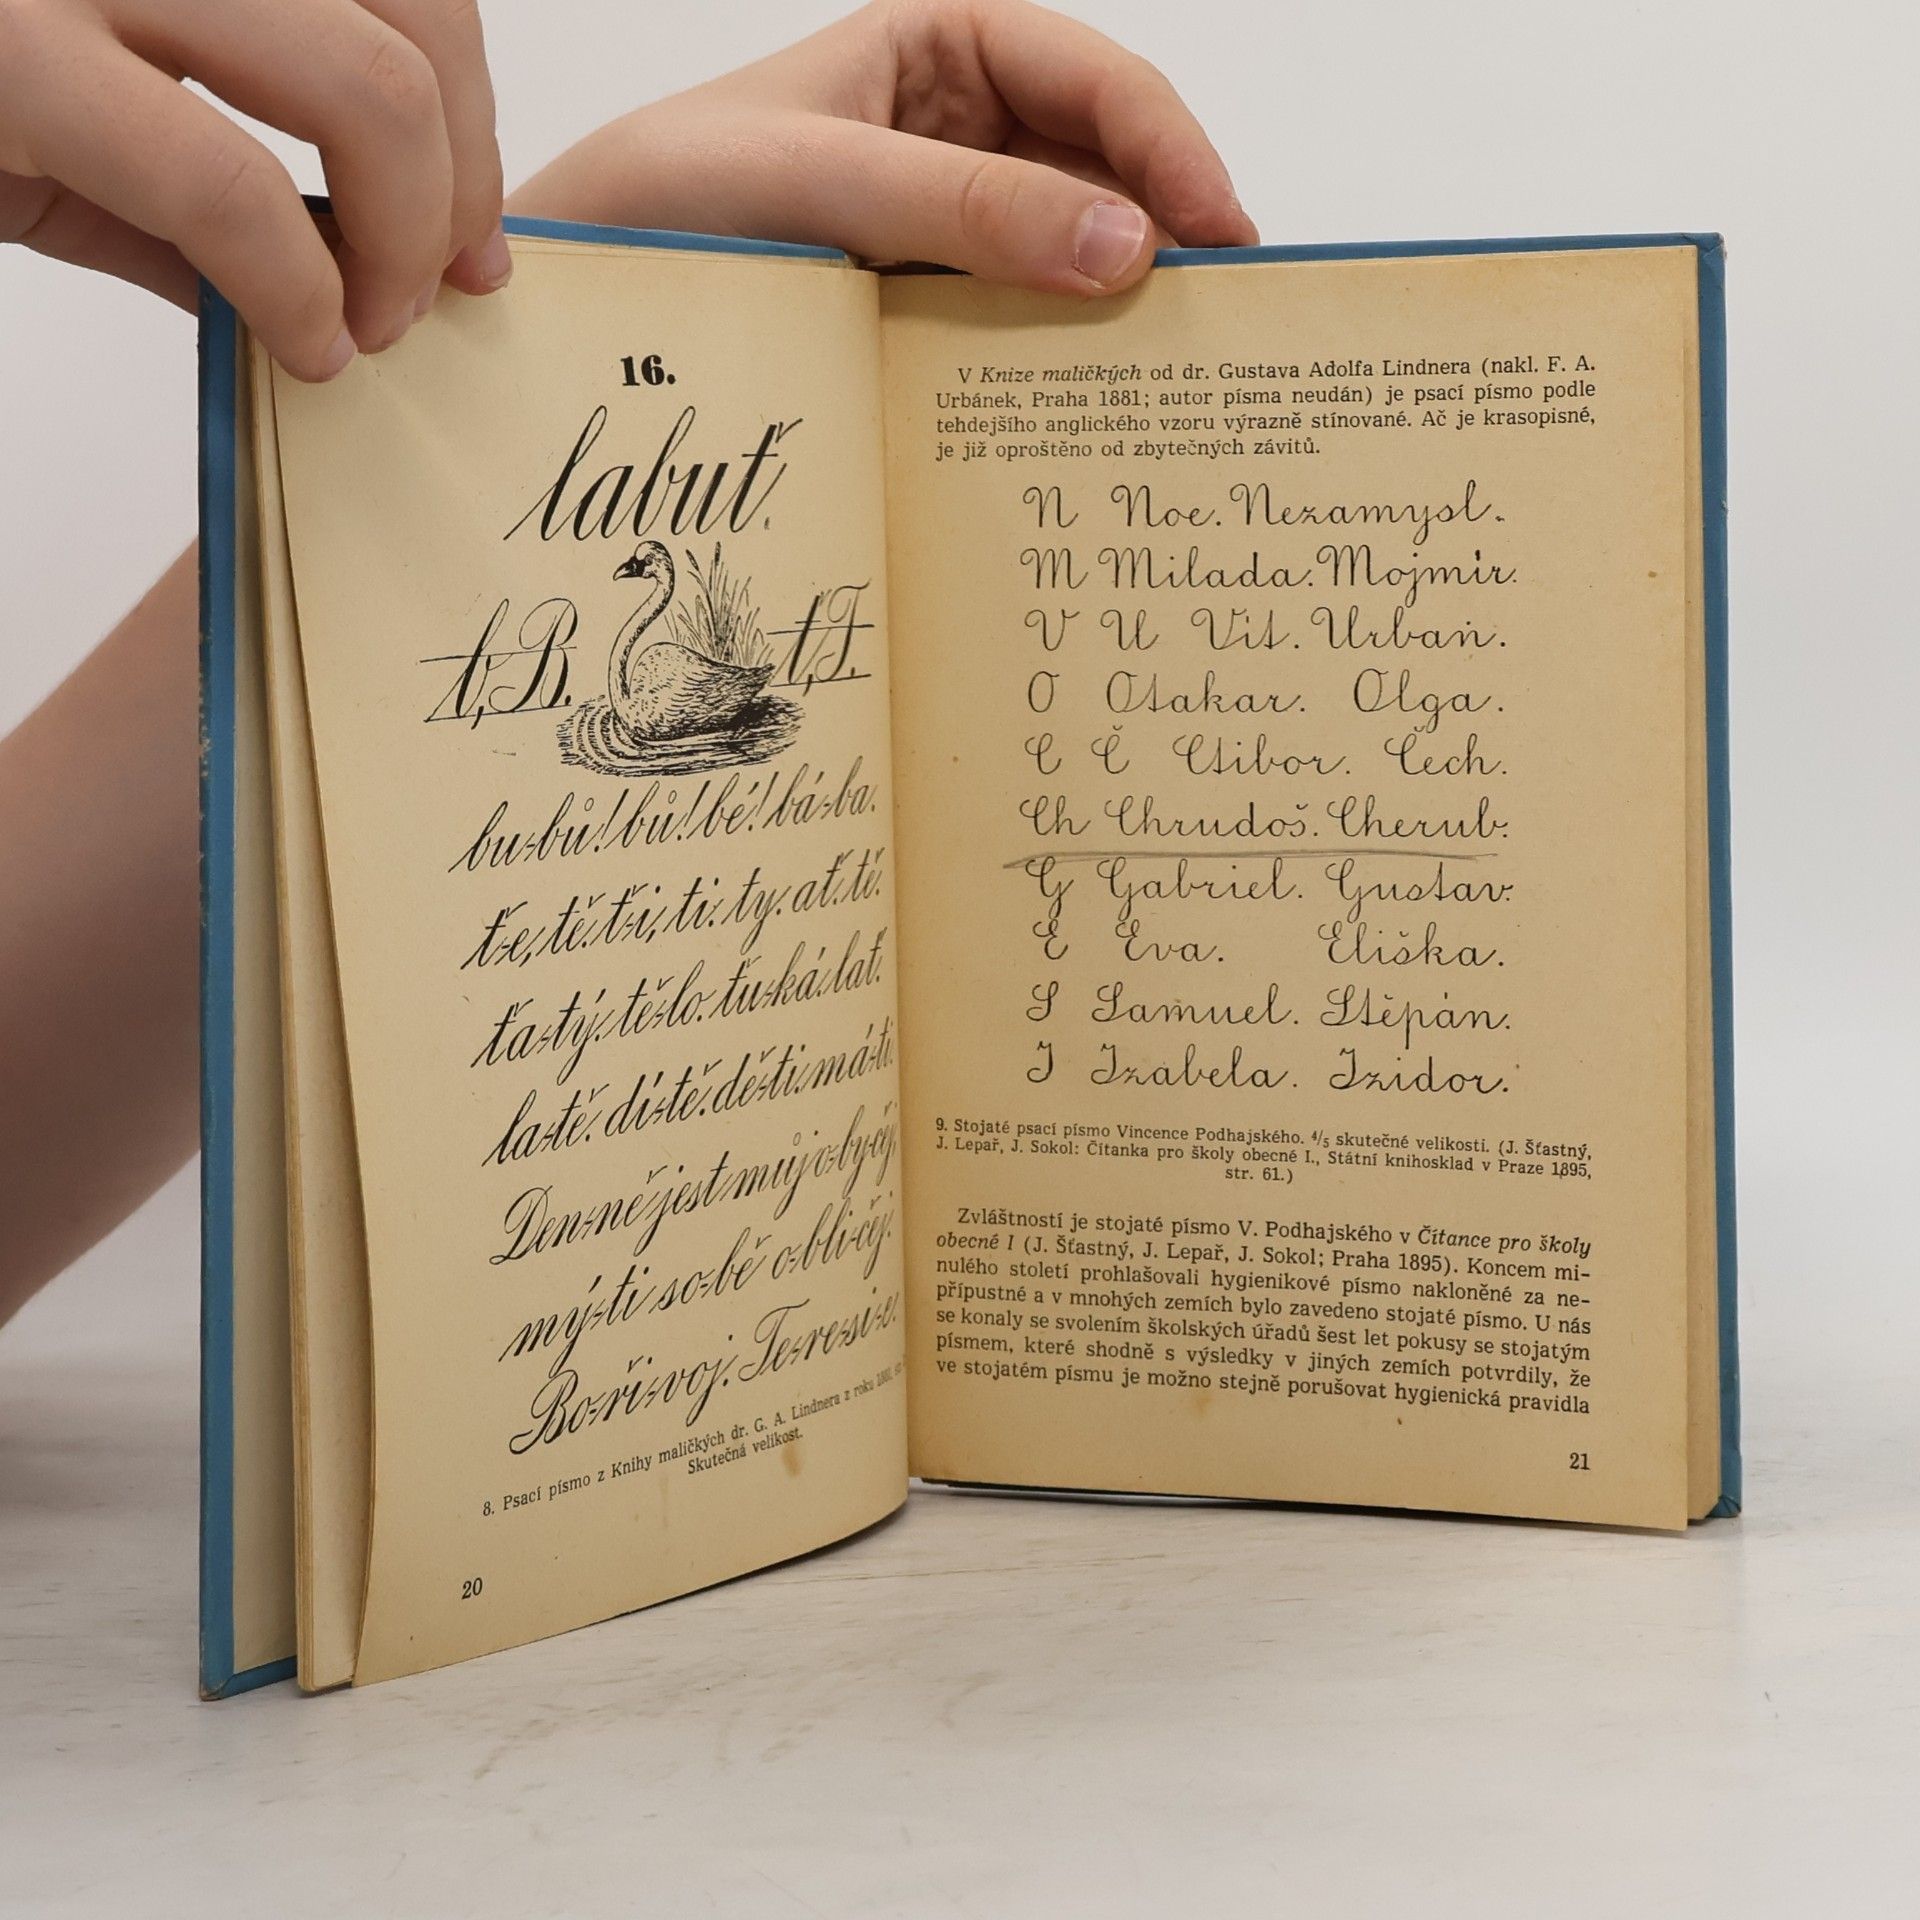 16.
labuť.
b, B.
ť, T.
bu-bů! bů! bé! bá-ba.
ť-e, tě. ť-i, ti. ty. ať. tě.
ťa-tý. tě-lo. ťu-ká. lať.
la-tě. dí-tě. dě-ti. má-ti.
Den-ně jest můj o-by-čej
mý-ti so-bě o-bli-čej.
Bo-ři-voj. Te-re-si-e.
8. Psací písmo z Knihy maličkých dr. G. A. Lindnera z roku 1881,
Skutečná velikost.
20
V Knize maličkých od dr. Gustava Adolfa Lindnera (nakl. F. A.
Urbánek, Praha 1881; autor písma neudán) je psací písmo podle
tehdejšího anglického vzoru výrazně stínované. Ač je krasopisné,
je již oproštěno od zbytečných závitů.
N Noe. Nezamysl.
M Milada. Mojmír.
V U Vít. Urban.
O Otakar. Olga.
C Č Ctibor. Čech.
Ch Chrudoš. Cherub.
G Gabriel. Gustav.
E Eva. Eliška.
S Samuel. Štěpán.
I Izabela. Izidor.
9. Stojaté psací písmo Vincence Podhajského. 4/5 skutečné velikosti. (J. Šťastný,
J. Lepař, J. Sokol: Čítanka pro školy obecné I., Státní knihosklad v Praze 1895,
str. 61.)
Zvláštností je stojaté písmo V. Podhajského v Čítance pro školy
obecné I (J. Šťastný, J. Lepař, J. Sokol; Praha 1895). Koncem mi-
nulého století prohlašovali hygienikové písmo nakloněné za ne-
přípustné a v mnohých zemích bylo zavedeno stojaté písmo. U nás
se konaly se svolením školských úřadů šest let pokusy se stojatým
písmem, které shodně s výsledky v jiných zemích potvrdily, že
ve stojatém písmu je možno stejně porušovat hygienická pravidla
21